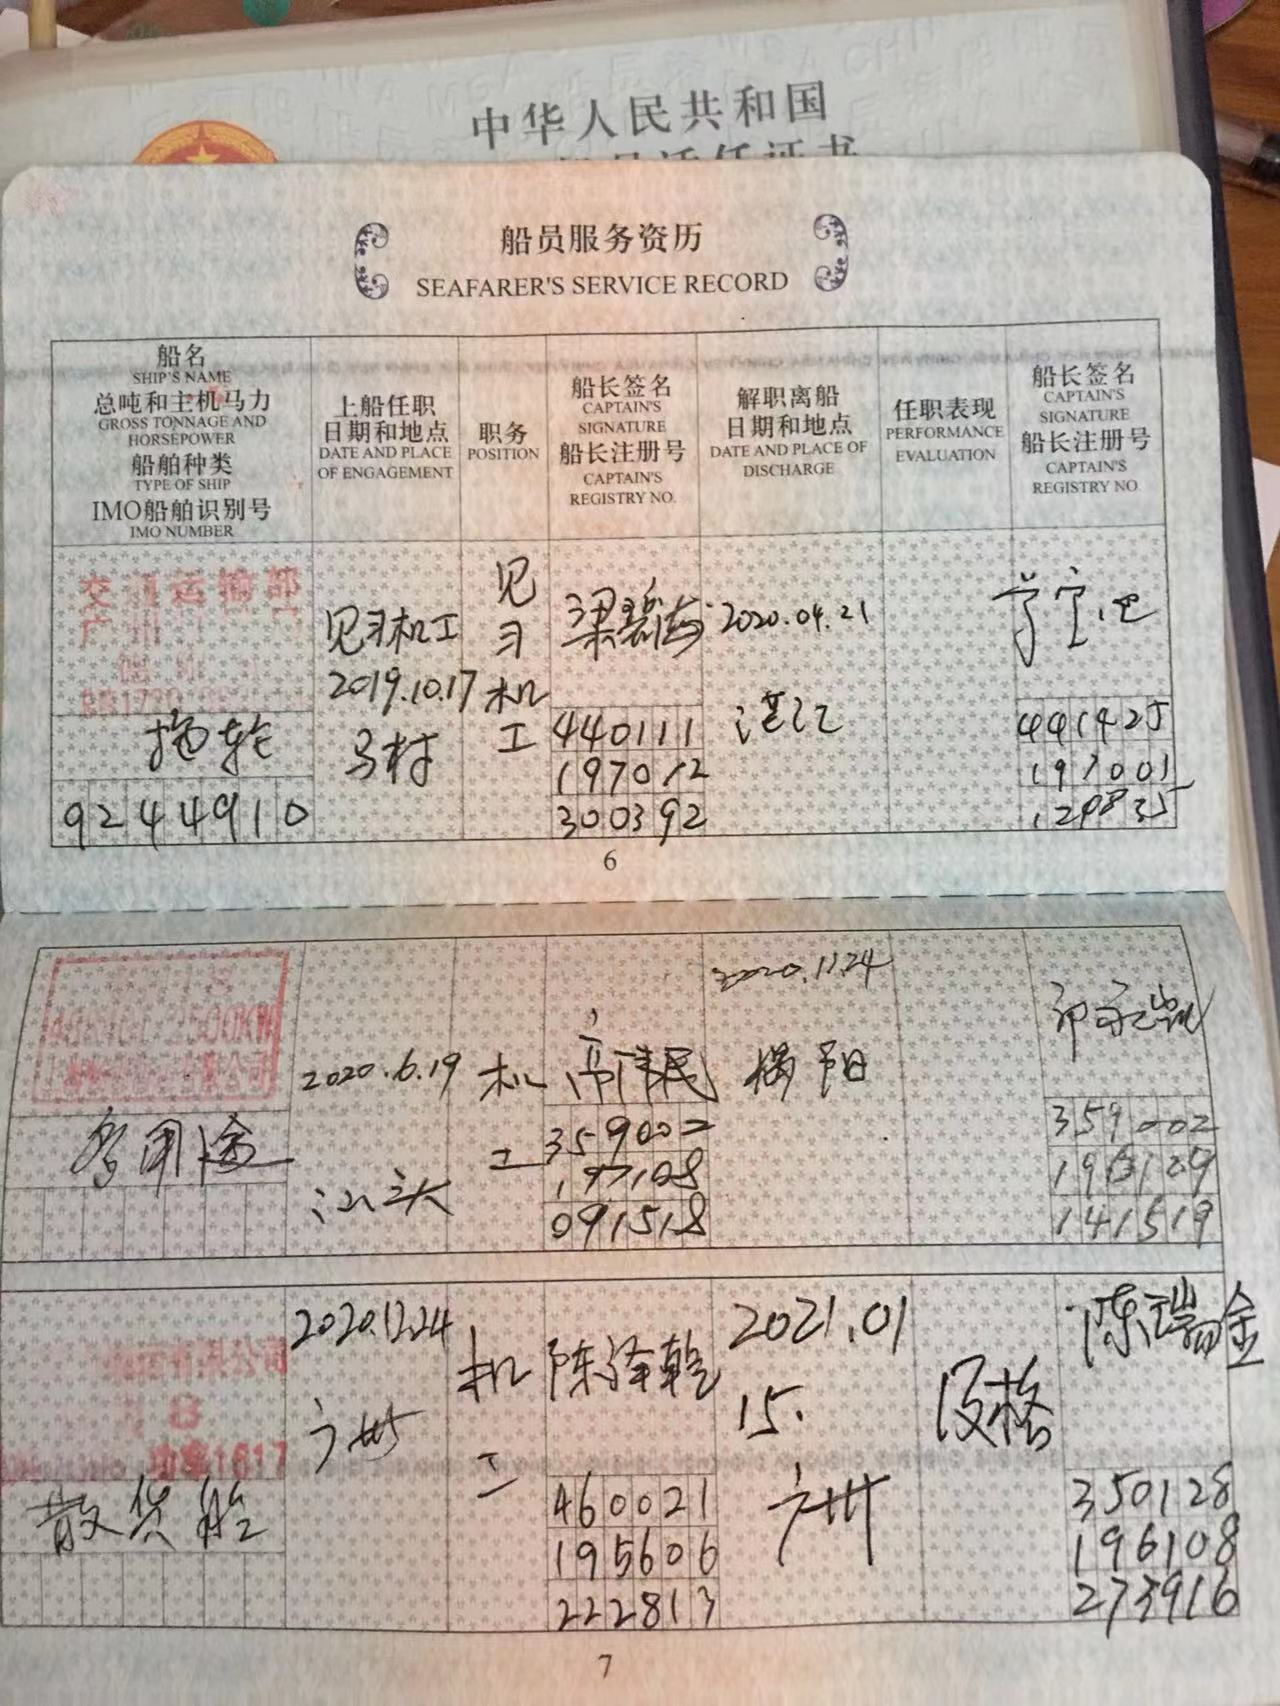 中华人民共和国
船员服务资历
SEAFARER'S SERVICE RECORD
船名
SHIP'S NAME
总吨和主机马力
GROSS TONNAGE AND
HORSEPOWER
船舶种类
TYPE OF SHIP
IMO船舶识别号
IMO NUMBER
上船任职
日期和地点
DATE AND PLACE
OF ENGAGEMENT
职务
POSITION
船长签名
CAPTAIN'S
SIGNATURE
船长注册号
CAPTAIN'S
REGISTRY NO.
解职离船
日期和地点
DATE AND PLACE OF
DISCHARGE
任职表现
PERFORMANCE
EVALUATION
船长签名
CAPTAIN'S
SIGNATURE
船长注册号
CAPTAIN'S
REGISTRY NO.
交通运输部
广州
拖轮
9244910
见习机工
2019.10.17
马村
见
习
机
工
梁碧海
440111
197012
300392
2020.04.21
湛江
441425
197001
6
多用途
2020.6.19
汕头
机
工
高伟民
359002
197108
091518
2020.11.24
揭阳
359002
141519
散货船
2020.12.24
广州
机
工
陈泽乾
460021
195606
222813
2021.01
15.
广州
及格
陈瑞金
350128
196108
273916
7